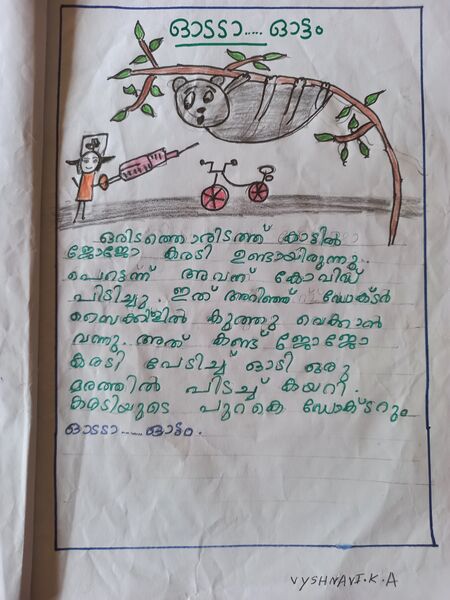 ഓടടാ..... ഓട്ടം
ഒരിടത്തൊരിടത്ത് കാട്ടിൽ
ജോജോ കരടി ഉണ്ടായിരുന്നു..
പെട്ടന്ന് അവന് കോവിഡ്
പിടിച്ചു. ഇത് അറിഞ്ഞ് ഡോക്ടർ
സൈക്കിളിൽ കുത്തു വെക്കാൻ
വന്നു.. അത് കണ്ട് ജോജോ
കരടി പേടിച്ച് ഓടി ഒരു
മരത്തിൽ പിടച്ച് കയറി.
കരടിയുടെ പുറകെ ഡോക്ടറും
ഓടടാ...... ഓട്ടം.
VYSHNAVI.K.A